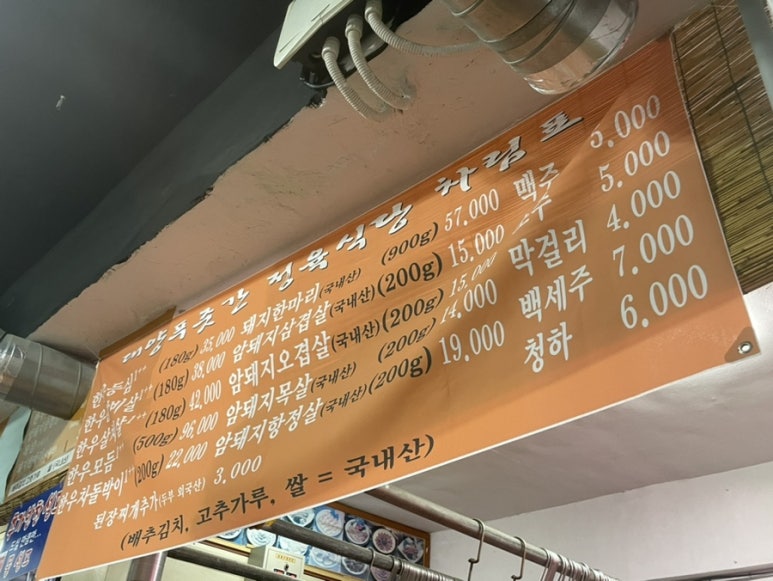 푸줏간 정육식당 차림표
한우등심1++ (180g) 35,000 돼지한마리(국내산) (900g) 57,000 맥주 5,000
(180g) 38,000 암돼지삼겹살(국내산) (200g) 15,000 소주 5,000
(180g) 42,000 암돼지오겹살(국내산) (200g) 15,000 막걸리 4,000
한우모듬 (500g) 96,000 암돼지목살(국내산) (200g) 14,000 백세주 7,000
한우차돌박이 (200g) 22,000 암돼지항정살(국내산) (200g) 19,000 청하 6,000
된장찌개추가(두부 외국산) 3,000
(배추김치, 고추가루, 쌀 = 국내산)